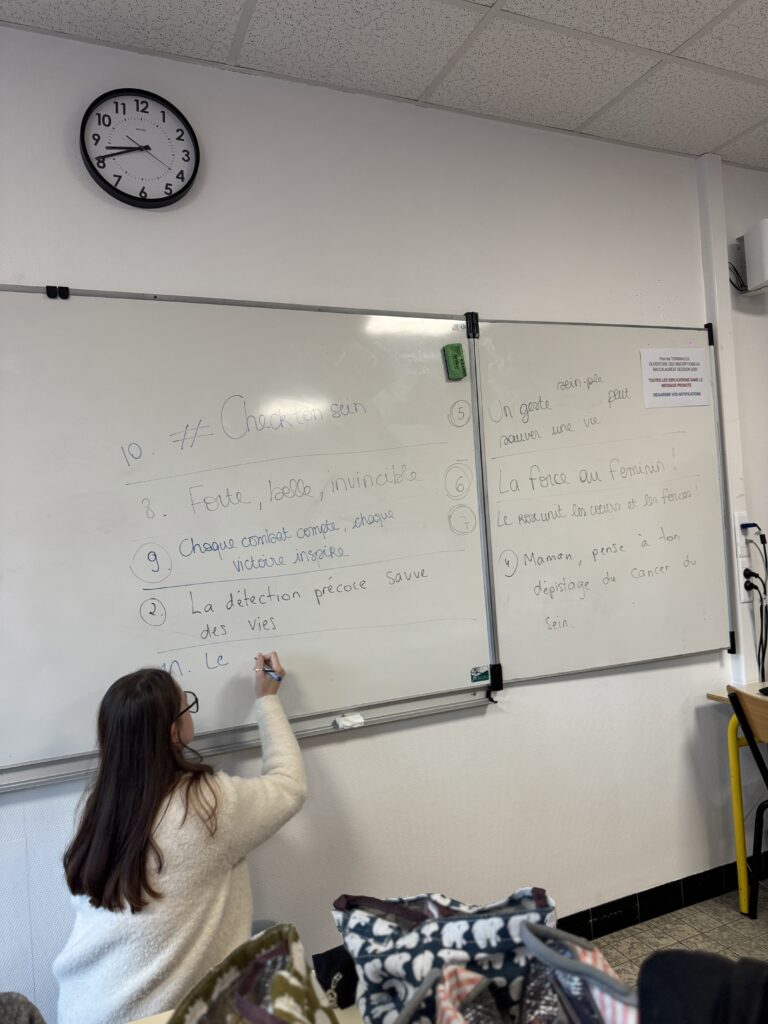 12
1
2
3
4
5
6
7
8
9
10
11
10. # Check ton sein
8. Forte, belle, invincible
9. Chaque combat compte, chaque
victoire inspire
2. La détection précoce sauve
des vies
Le
5 Un geste sein-ple peut
sauver une vie
6 La force au feminin !
7 Le rose unit les cœurs et les forces !
4 Maman, pense à ton
dépistage du cancer du
sein.
Pour les TERMINALES
OUVERTURE DES INSCRIPTIONS AU
BACCALAUREAT SESSION
TOUTES LES EXPLICATIONS DANS LE
MESSAGE PRONOTE
REGARDER VOS NOTIFICATIONS